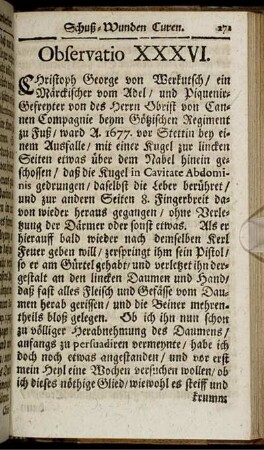 Schuß-Wunden Curen. 271
Observatio XXXVI.
CHristoph George von Werkutsch/ ein
Märckischer vom Adel/ und Piquenir-
Gefreyter von des Herrn Obrist von Can-
nen Compagnie beym Götzischen Regiment
zu Fuß/ ward A. 1677. vor Stettin bey ei-
nem Ausfalle/ mit einer Kugel zur lincken
Seiten etwas über dem Nabel hinein ge-
schossen/ daß die Kugel in Cavitate Abdomi-
nis gedrungen/ daselbst die Leber berühret/
und zur andern Seiten 8. Fingerbreit da-
von wieder heraus gegangen/ ohne Verle-
tzung der Därmer oder sonst etwas. Als er
hierauff bald wieder nach demselben Kerl
Feuer geben will/ zerspringt ihm sein Pistol/
so er am Gürtel gehabt/ und verletzt ihn der-
gestalt an den lincken Daumen und Hand/
daß fast alles Fleisch und Gefässe vom Dau-
men herab gerissen/ und die Beiner mehren-
theils bloß gelegen. Ob ich ihn nun schon
zu völliger Herabnehmung des Daumens/
anfangs zu persuadiren vermeynte/ habe ich
doch noch etwas angestanden/ und vor erst
mein Heyl eine Wochen versuchen wollen/ ob
ich dieses nöthige Glied/ wiewohl es steiff und
krumm